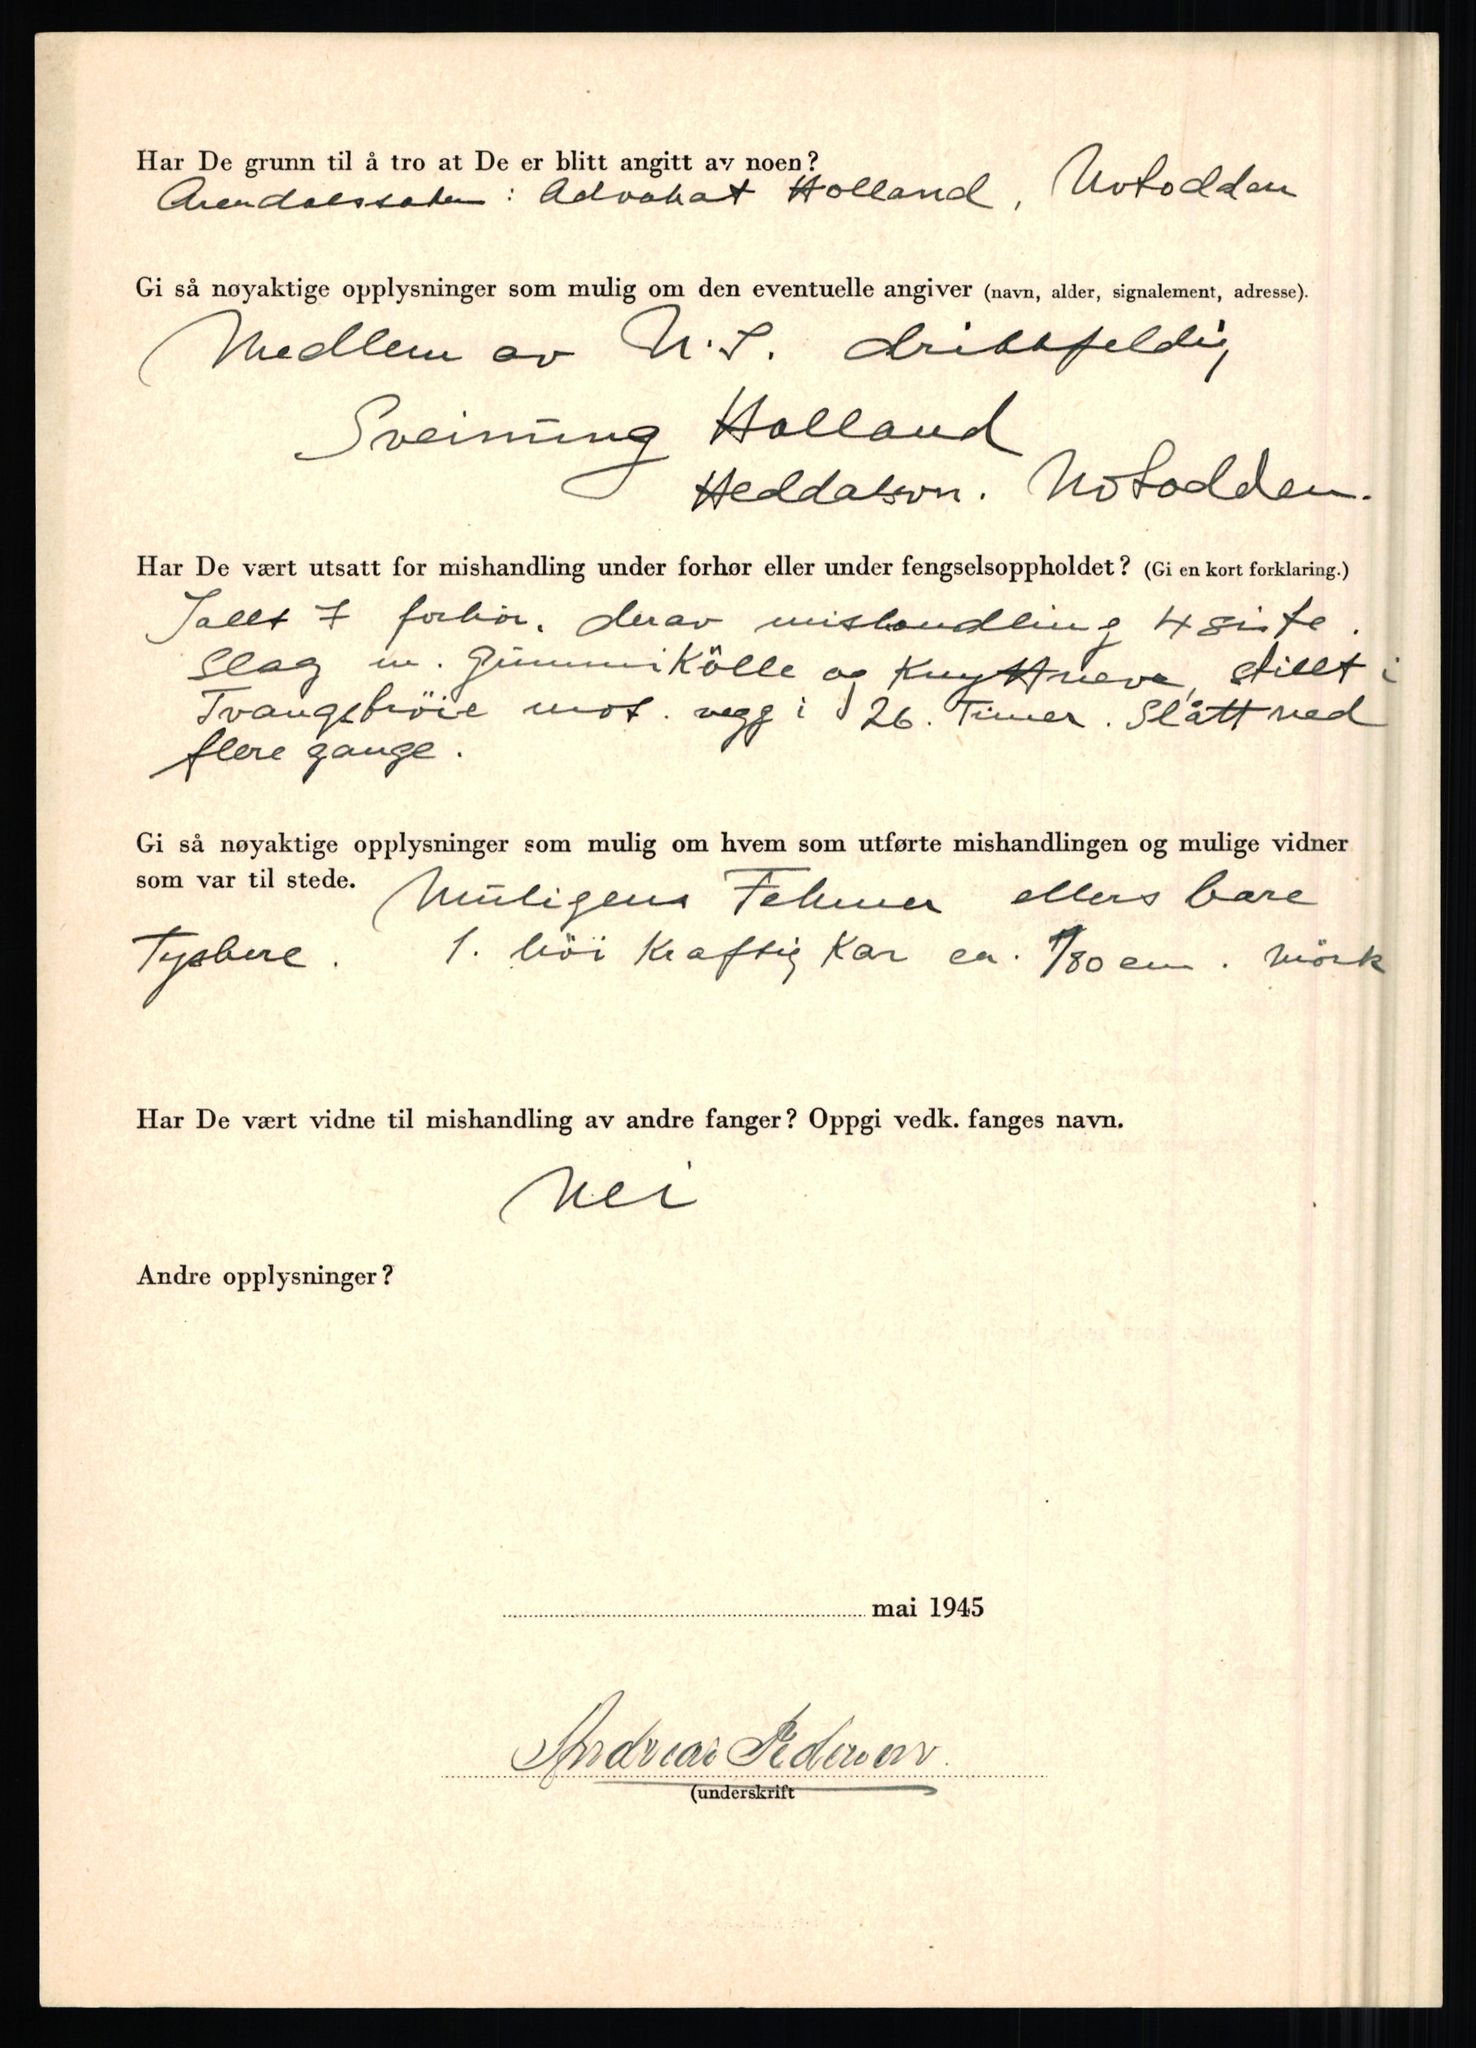 Har De grunn til å tro at De er blitt angitt av noen?
Arendalssaken: Advokat Holland, Notodden
Gi så nøyaktige opplysninger som mulig om den eventuelle angiver (navn, alder, signalement, adresse).
Medlem av N.S. drikkfeldig,
Sveinung Holland
Heddalsvn. Notodden.
Har De vært utsatt for mishandling under forhør eller under fengselsoppholdet? (Gi en kort forklaring.)
Iallt 7 forhör. derav mishandling 4 siste.
Slag m. Gummikölle og Knyttneve, stillt i
Tvangströie mot. vegg i 26. Timer. Slått ned
flere gange.
Gi så nøyaktige opplysninger som mulig om hvem som utførte mishandlingen og mulige vidner
som var til stede. Muligens Fehmer ellers bare
Tyskere. 1. höi Kraftig Kar ca. 180 cm. mörk
Har De vært vidne til mishandling av andre fanger? Oppgi vedk. fanges navn.
Nei
Andre opplysninger?
mai 1945
Andreas Pedersen.
(underskrift